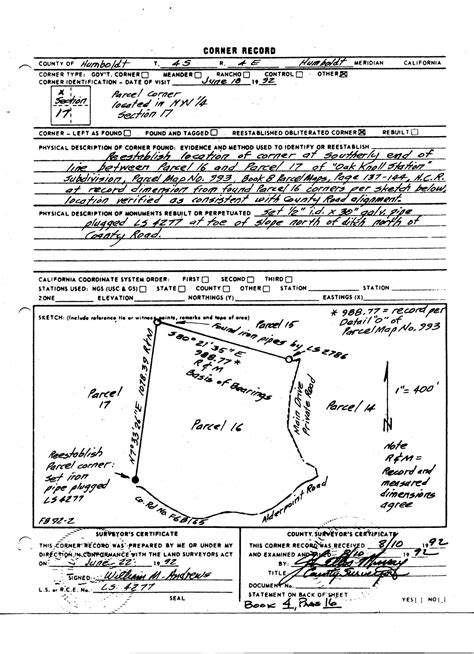 CORNER RECORD
COUNTY OF Humboldt T. 4S R. 4E Humboldt MERIDIAN CALIFORNIA
CORNER TYPE: GOV'T. CORNER☐ MEANDER☐ RANCHO☐ CONTROL☐ OTHER☒
IDENTIFICATION – DATE OF VISIT June 18 1992
x
Section
17
Parcel Corner
located in NW 1/4
Section 17
CORNER – LEFT AS FOUND☐ FOUND AND TAGGED☐ REESTABLISHED OBLITERATED CORNER☒ REBUILT☐
PHYSICAL DESCRIPTION OF CORNER FOUND: EVIDENCE AND METHOD USED TO IDENTIFY OR REESTABLISH
Reestablish location of corner at southerly end of
line between Parcel 16 and Parcel 17 of "Oak Knoll Station"
Subdivision, Parcel Map No. 993, Book 8 Parcel Maps, Page 137-144, H.C.R.
at record dimension from found Parcel 16 corners per sketch below,
location verified as consistent with County Road alignment.
PHYSICAL DESCRIPTION OF MONUMENTS REBUILT OR PERPETUATED Set 1/2" i.d. x 30" galv. pipe
plugged LS 4277 at toe of slope north of ditch north of
County Road.
CALIFORNIA COORDINATE SYSTEM ORDER: FIRST☐ SECOND☐ THIRD☐
STATIONS USED: NGS (USC & GS)☐ STATE☐ COUNTY☐ OTHER☐ STATION STATION
ZONE ELEVATION NORTHINGS (Y) EASTINGS (X)
SKETCH: (Include reference tie or witness points, remarks and tape of area)
* 988.77 = record per
Detail "O" of
Parcel Map No. 993
Parcel 15
Found iron pipes by LS 2786
S80° 21' 35" E
988.77 *
R & M
Basis of Bearings
N7° 33' 26" E 1078.39 R & M
Parcel
17
Parcel 16
Main Drive
Private Road
Parcel 14
1" = 400'
Note
R & M =
Record and
measured
dimensions
agree
Reestablish
Parcel corner:
Set iron
pipe plugged
LS 4277
Co. Rd. No. F6B165
Alderpoint Road
FB 92-2
SURVEYOR'S CERTIFICATE
THIS CORNER RECORD WAS PREPARED BY ME OR UNDER MY
DIRECTION IN CONFORMANCE WITH THE LAND SURVEYORS ACT
ON June 22 1992
SIGNED: William M. Andrews
L.S. or R.C.E. No. LS 4277
SEAL
COUNTY SURVEYOR'S CERTIFICATE
THIS CORNER RECORD WAS RECEIVED 8/10 1992
AND EXAMINED AND FILED 8/10 1992
BY:
TITLE County Surveyor
DOCUMENT No.
STATEMENT ON BACK OF SHEET YES☐ NO☐
Book 4, Page 16